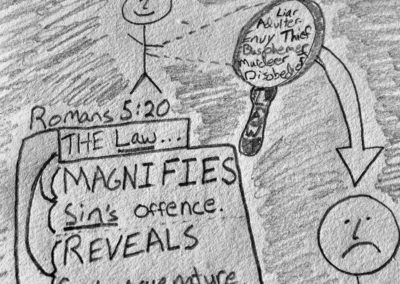 Liar
Adulter
Envy Thief
Blasphemer
Murderer
Disobedient
LAW
Romans 5:20
THE Law...
MAGNIFIES
Sin's offence.
REVEALS
nature